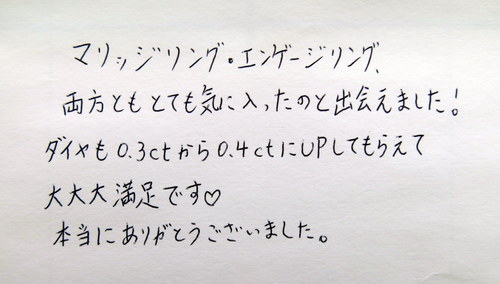 マリッジリング・エンゲージリング、
両方ともとても気に入ったのと出会えました!
ダイヤも0.3ctから0.4ctにUPしてもらえて
大大大満足です♡
本当にありがとうございました。